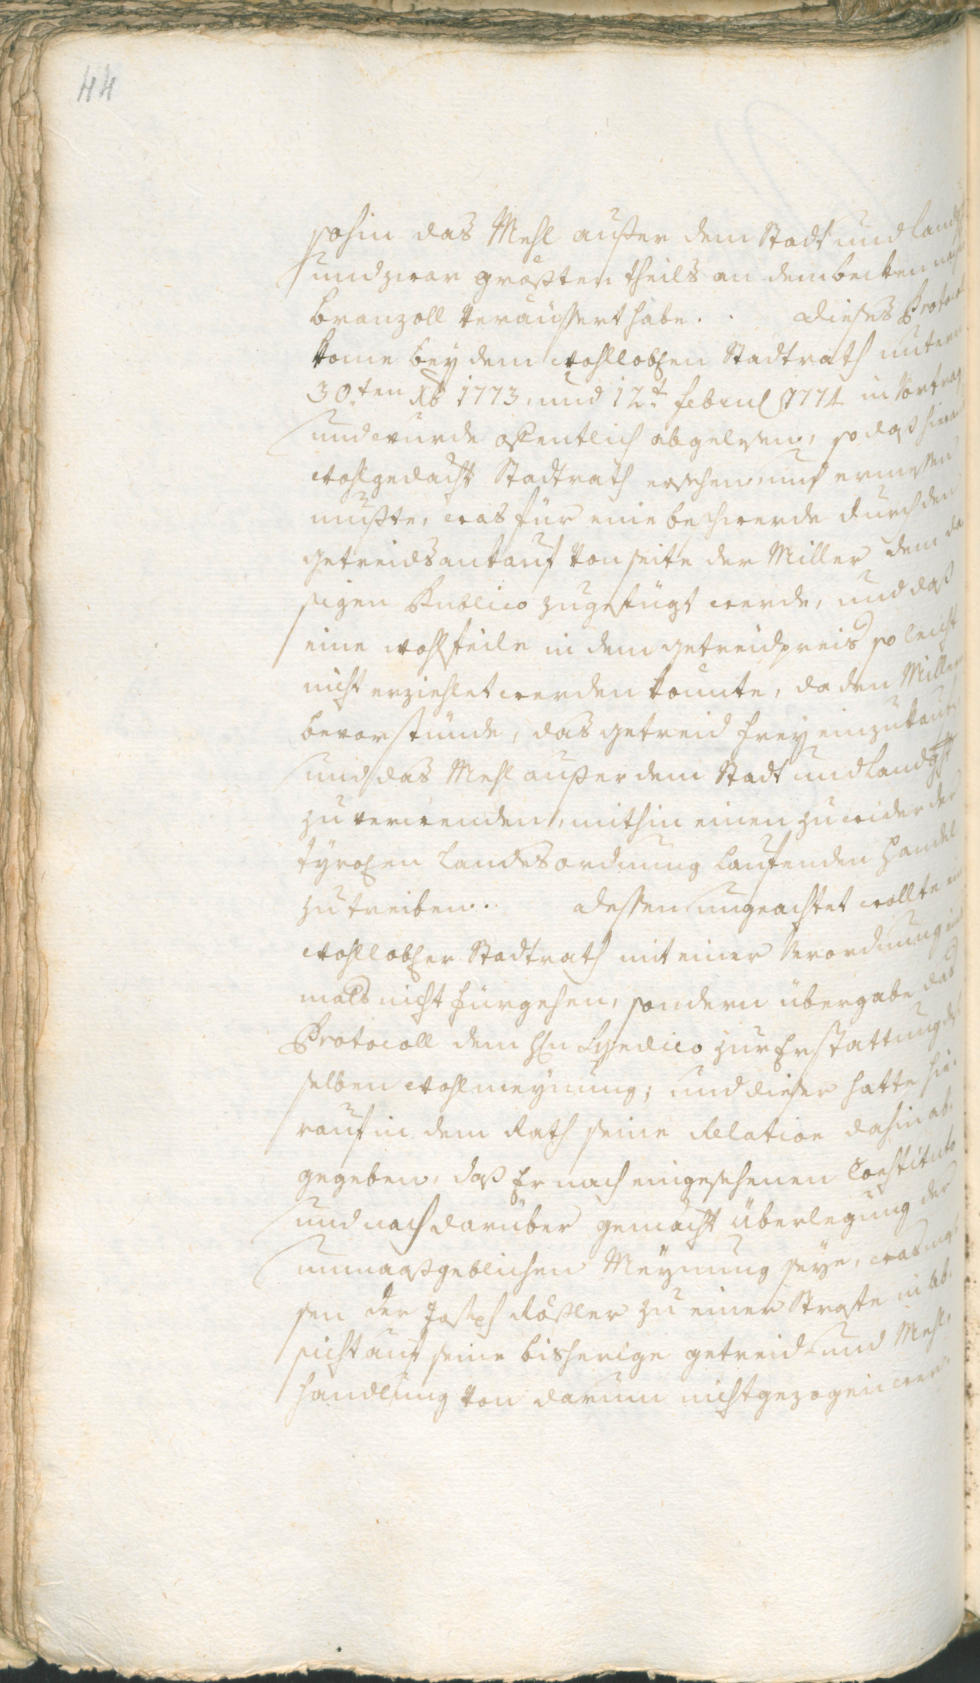 44
sohin das Mehl außer dem Stadt und Land
und zwar größten theils an dem becken nach
Branzoll veräussert habe. . dieses Protocoll
kome bey dem wohllobℓen Stadtrath unterm
30.ten Xb 1773. und 12t. februl 1774 in Vortrag
und wurde offentlich abgelesen, so daß hieraus
wohlgedacht Stadtrath ersehen, und ermessen
mußte, was für eine beschwerde durch den
getreidsankauf von seite der Miller dem da
sigen Publico zugefügt werde, und daß
eine wohlfeile in dem getreidpreis so leicht
nicht erziehlet werden konnte, da den Millern
bevorstünde, das getreid frey einzukaufen
und das Mehl außer dem Stadt und Landgℓt
zu verwenden, mithin einen zuwider der
tyrolℓen Landesordnung laufenden Handel
zu treiben. dessen ungeachtet wollte ein
wohllobℓer Stadtrath mit einer Verordnung
mals nicht fürgehen, sondern übergabe das
Protocoll dem Hℓn Syndico zur Erstattung des
selben wohlmeynung; und dieser hatte hie
rauf in dem Rath seine Relation dahin ab
gegeben, daß Er nach eingesehenen Constituto
und nach darüber gemacht Überlegung der
unmaaßgeblichen Meynung seye, was mas
sen der Joseph Rößler zu einer Straffe in Ab
sicht auf seine bisherige getreid- und Mehl
handlung von darum nicht gezogen wer